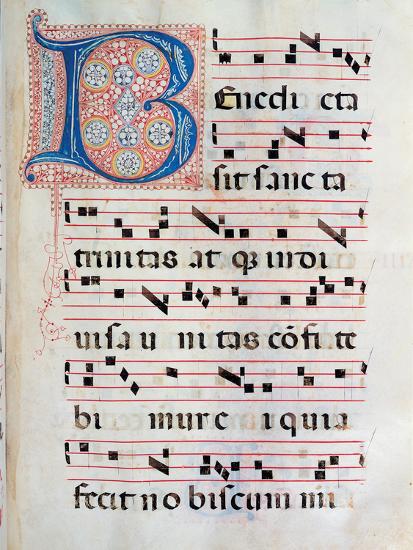 Benedicta
sit sancta
trinitas atq; indi
uisa unitas cōfite
bimur ei quia
fecit nobiscum mi